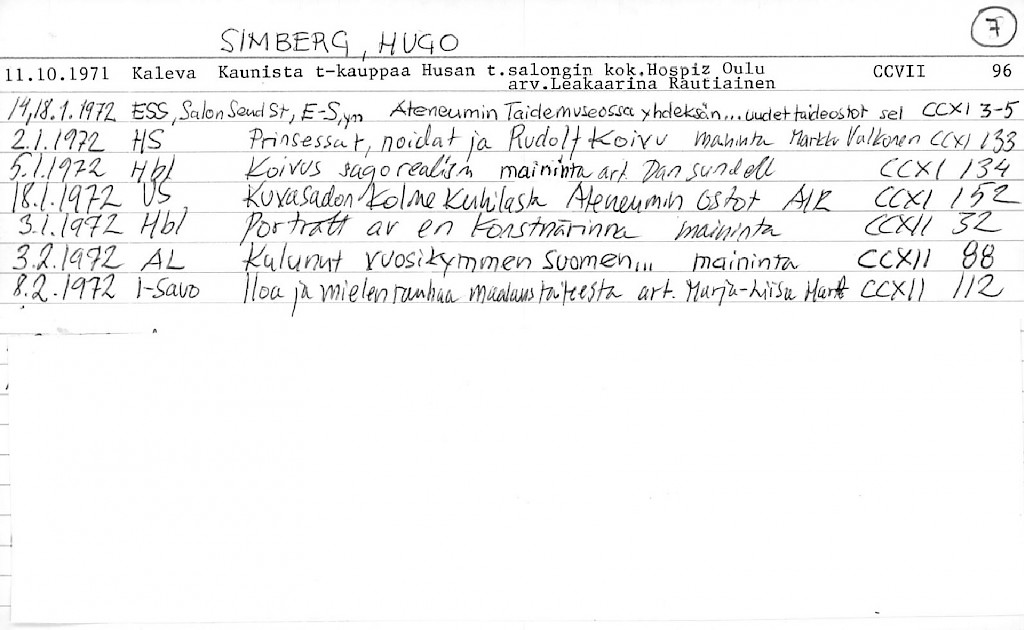 7
SIMBERG, HUGO
11.10.1971 Kaleva Kaunista t-kauppaa Husan t.salongin kok.Hospiz Oulu CCVII 96
arv.Leakaarina Rautiainen
14,18.1.1972 ESS, Salon Seud St, E-S, ym Ateneumin Taidemuseossa yhdeksän... uudet taideostot sel CCXI 3-5
2.1.1972 HS Prinsessat, noidat ja Rudolf Koivu maininta Markku Valkonen CCXI 133
5.1.1972 Hbl Koivus sagorealism maininta art. Dan Sundell CCXI 134
18.1.1972 US Kuvasadon kolme kuhilasta Ateneumin ostot AIR CCXI 152
3.1.1972 Hbl Porträtt av en konstnärinna maininta CCXII 32
3.2.1972 AL Kulunut vuosikymmen Suomen... maininta CCXII 88
8.2.1972 I-Savo Iloa ja mielenrauhaa maalaustaiteesta art. Marja-Liisa CCXII 112